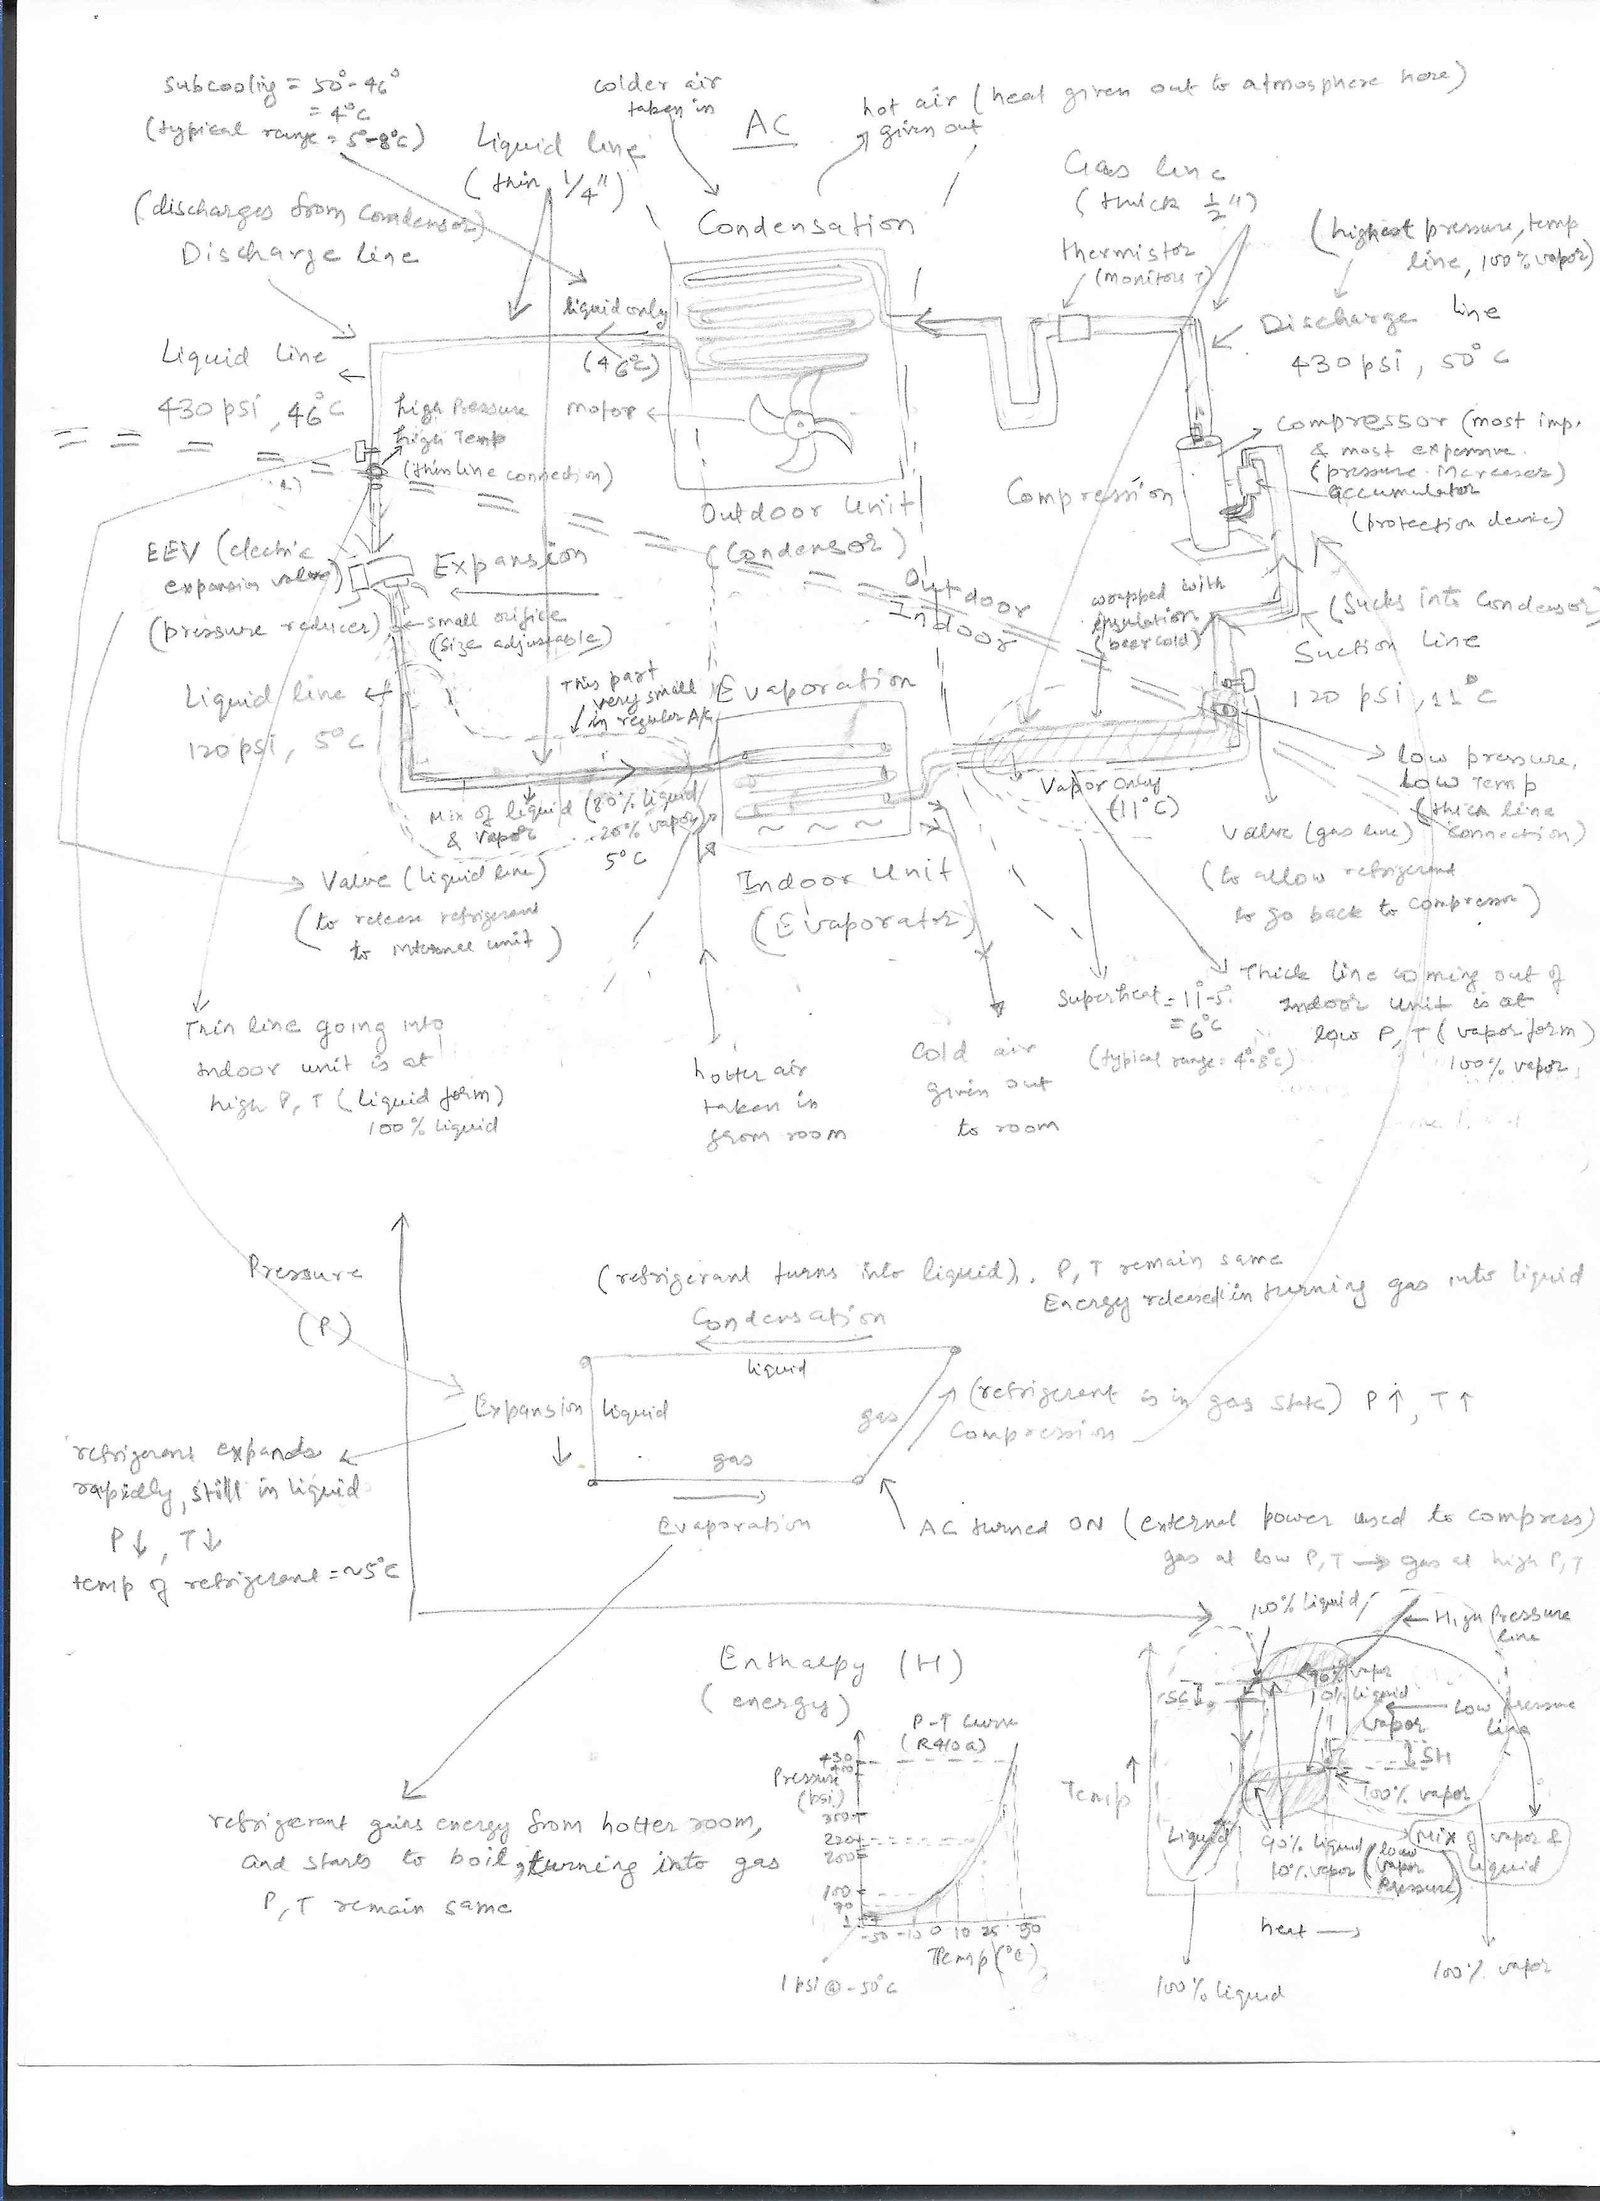 Subcooling = 50° - 46°
= 4°C
(typical range = 5°-8°C)
colder air
taken in
AC
hot air (heat given out to atmosphere here)
given out
Liquid line
(thin 1/4")
Gas line
(thick 1/2")
thermistor
(monitors T)
(highest pressure, temp
line, 100% vapor)
(discharges from Condensor)
Discharge line
Condensation
liquid only
(46°C)
Discharge line
430 psi, 50°C
Liquid line
430 psi, 46°C
high Pressure
high Temp
(thin line connection)
motor
Compressor (most imp.
& most expensive.
(pressure increaser)
accumulator
(protection device)
Compression
Outdoor Unit
(Condensor)
EEV (electric
expansion valve)
(pressure reducer)
Expansion
small orifice
(size adjustable)
Outdoor
Indoor
wrapped with
insulation
(beer cold)
(Sucks into Condensor)
Suction Line
120 psi, 11°C
Liquid line
120 psi, 5°C
This part
very small
in regular A/C
Evaporation
low pressure,
low Temp
(thick line
connection)
Vapor only
(11°C)
Mix of liquid (80% liquid
& vapor 20% vapor)
5°C
Valve (gas line)
(to allow refrigerant
to go back to compressor)
Valve (liquid line)
(to release refrigerant
to internal unit)
Indoor Unit
(Evaporator)
Superheat = 11°-5°
= 6°C
(typical range = 4°-8°C)
Thick line coming out of
indoor unit is at
low P, T (vapor form)
100% vapor
Thin line going into
indoor unit is at
high P, T (liquid form)
100% liquid
hotter air
taken in
from room
cold air
given out
to room
Pressure
(P)
(refrigerant turns into liquid). P, T remain same
Energy released in turning gas into liquid
Condensation
liquid
Expansion
liquid
gas
(refrigerant is in gas state) P↑, T↑
Compression
gas
Evaporation
refrigerant expands
rapidly, still in liquid
P↓, T↓
temp of refrigerant = ~5°C
AC turned ON (external power used to compress)
gas at low P, T → gas at high P, T
Enthalpy (H)
(energy)
100% liquid
High Pressure
line
90% vapor
10% liquid
SC
vapor
Low pressure
line
SH
100% vapor
Temp
Liquid
90% liquid
10% vapor
(low
vapor
pressure)
Mix of vapor &
liquid
heat →
100% liquid
100% vapor
P-T curve
(R410a)
Pressure
(psi)
430
400
220
200
100
1
-50 -10 0 10 25 50
Temp (°C)
1 psi @ -50°C
refrigerant gains energy from hotter room,
and starts to boil, turning into gas
P, T remain same